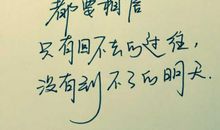 都要相信
只有回不去的过往，
没有到不了的明天.